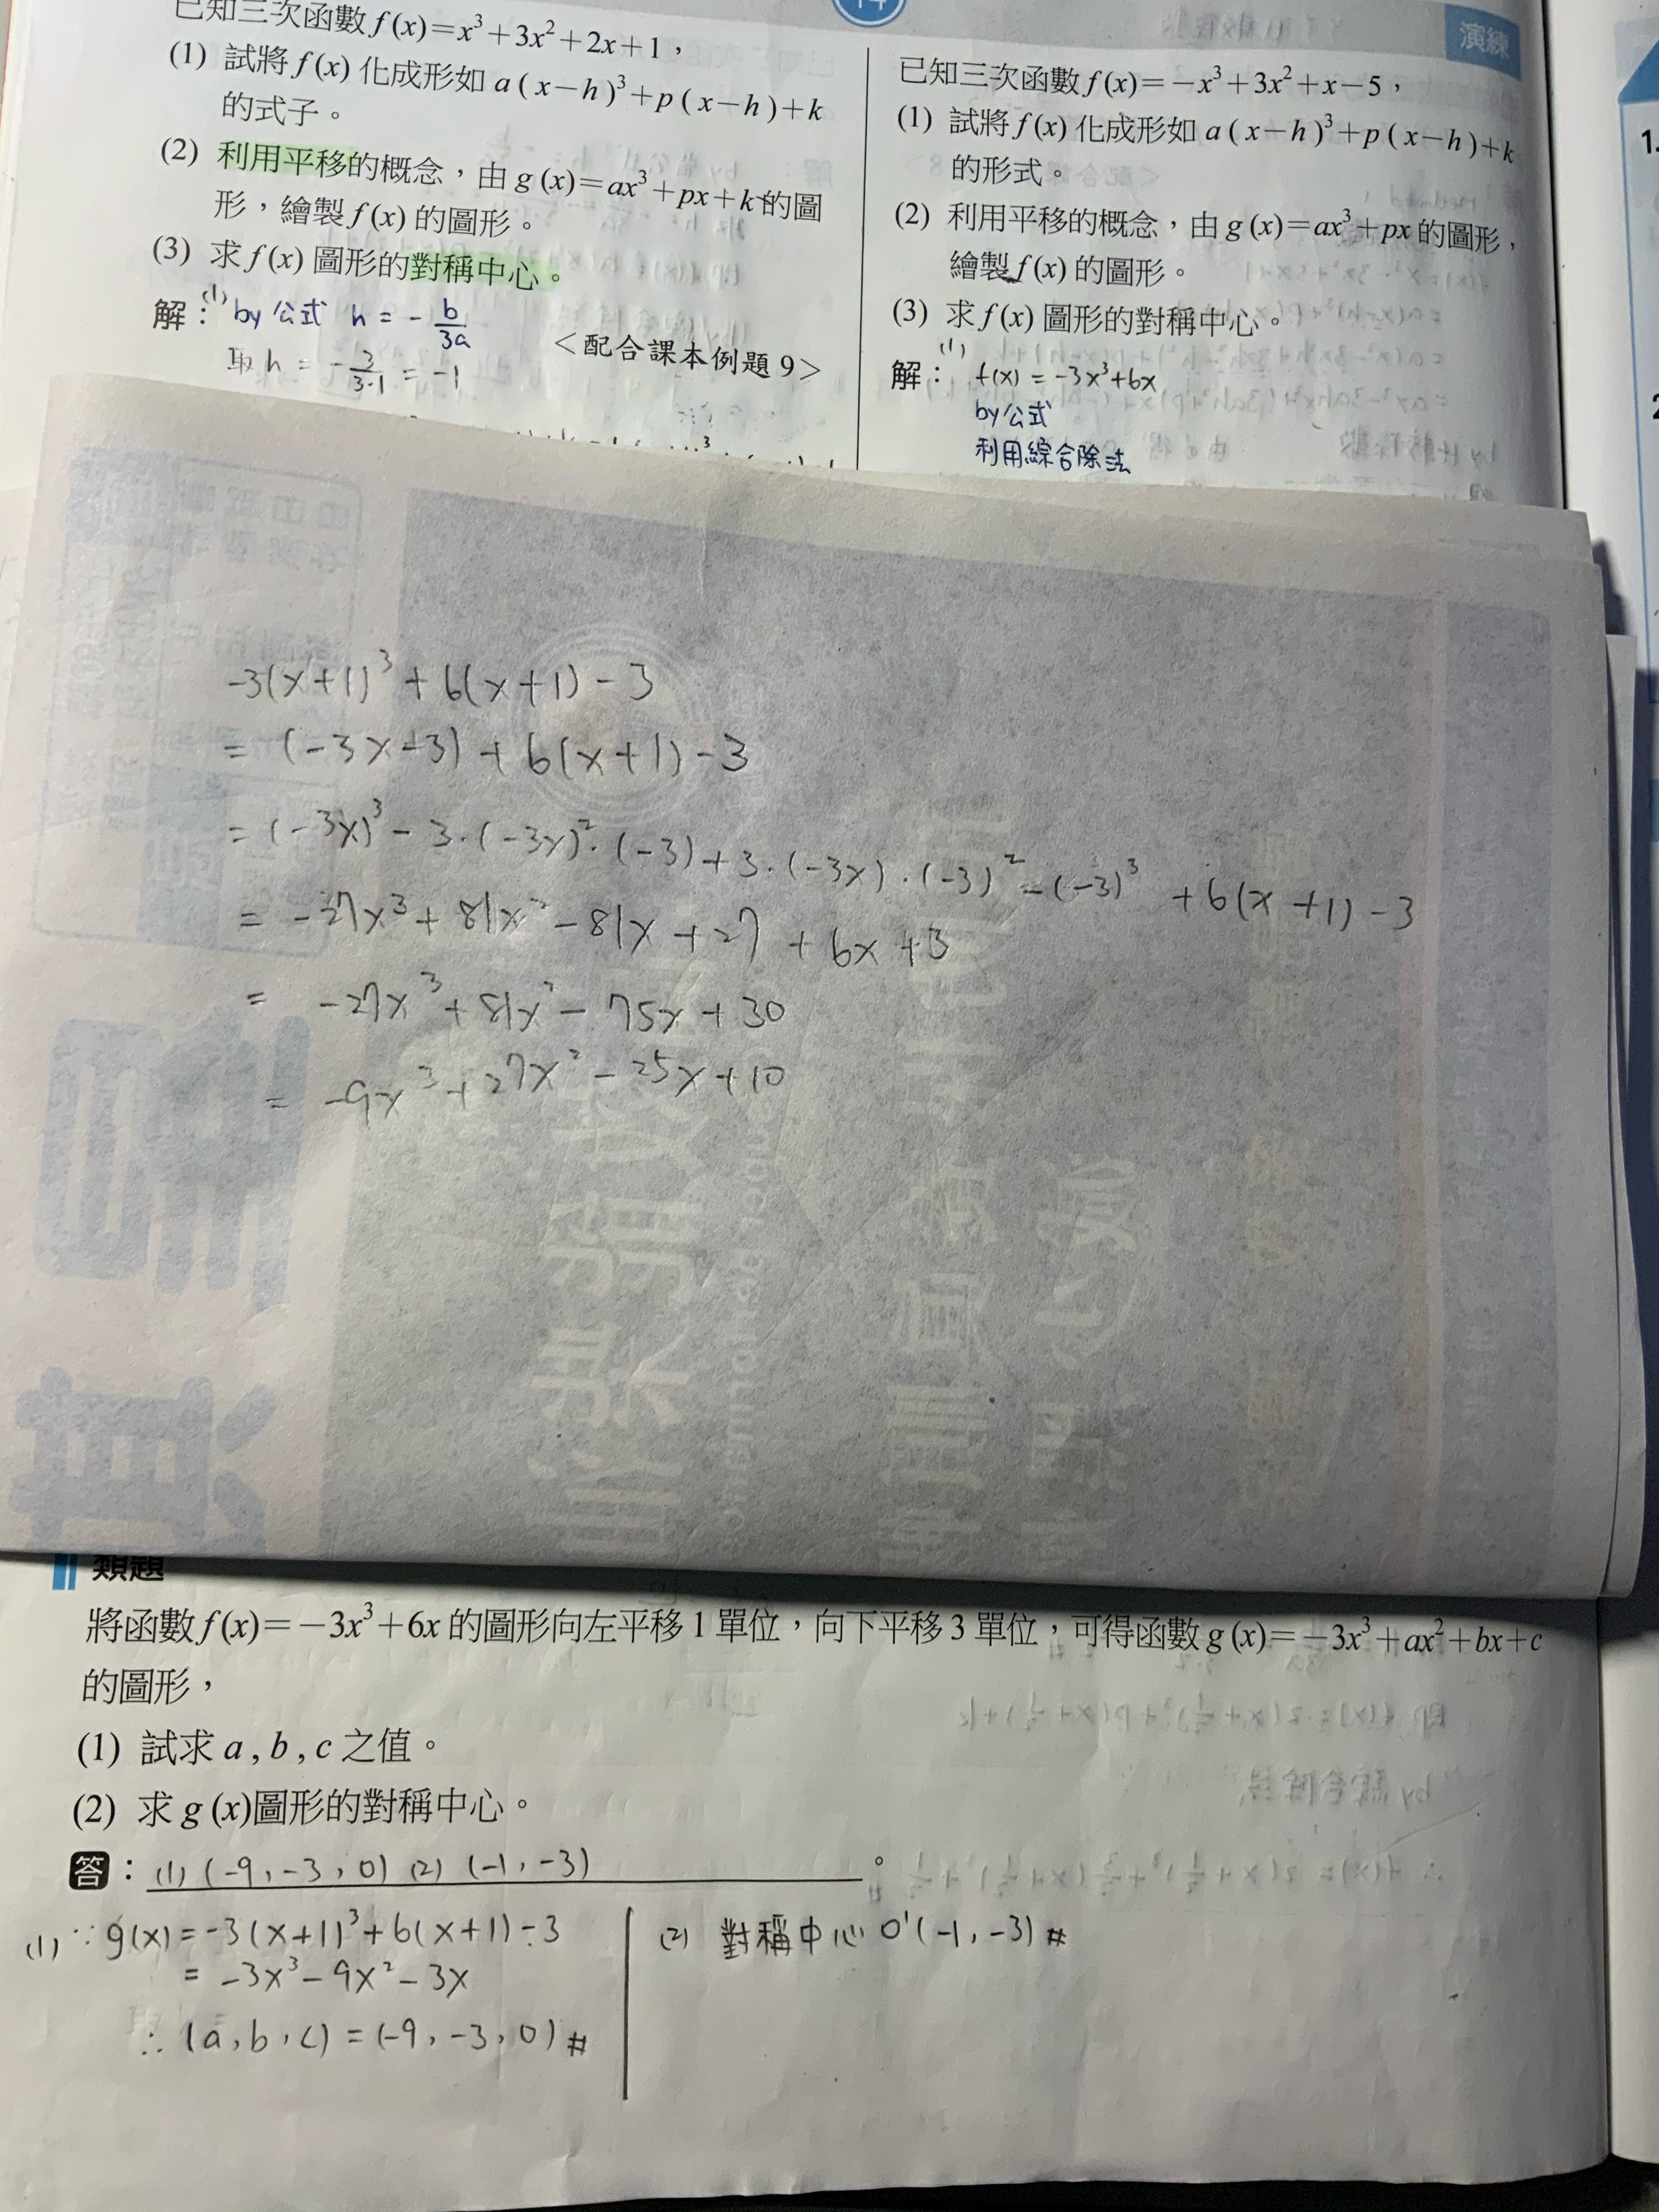 已知三次函數 f(x)=x³+3x²+2x+1，
(1) 試將 f(x) 化成形如 a(x-h)³+p(x-h)+k
的式子。
(2) 利用平移的概念，由 g(x)=ax³+px+k 的圖
形，繪製 f(x) 的圖形。
(3) 求 f(x) 圖形的對稱中心。
解：(1) by 公式 h = - b/3a
取 h = - 3/3·1 = -1
<配合課本例題 9>
14
演練
已知三次函數 f(x)=-x³+3x²+x-5，
(1) 試將 f(x) 化成形如 a(x-h)³+p(x-h)+k
的形式。
(2) 利用平移的概念，由 g(x)=ax³+px 的圖形，
繪製 f(x) 的圖形。
(3) 求 f(x) 圖形的對稱中心。
解：(1) f(x) = -3x³+6x
by 公式
利用綜合除法
1.
2
-3(x+1)³ + 6(x+1) - 3
= (-3x-3) + 6(x+1) - 3
= (-3x)³ - 3·(-3x)²·(-3) + 3·(-3x)·(-3)² - (-3)³ + 6(x+1) - 3
= -27x³ + 81x² - 81x + 27 + 6x + 3
= -27x³ + 81x² - 75x + 30
= -9x³ + 27x² - 25x + 10
類題
將函數 f(x)=-3x³+6x 的圖形向左平移 1 單位，向下平移 3 單位，可得函數 g(x)=-3x³+ax²+bx+c
的圖形，
(1) 試求 a , b , c 之值。
(2) 求 g(x)圖形的對稱中心。
答：(1) (-9, -3, 0) (2) (-1, -3)。
(1) ∵ g(x) = -3(x+1)³ + 6(x+1) - 3
= -3x³ - 9x² - 3x
∴ (a, b, c) = (-9, -3, 0) #
(2) 對稱中心 O'(-1, -3) #